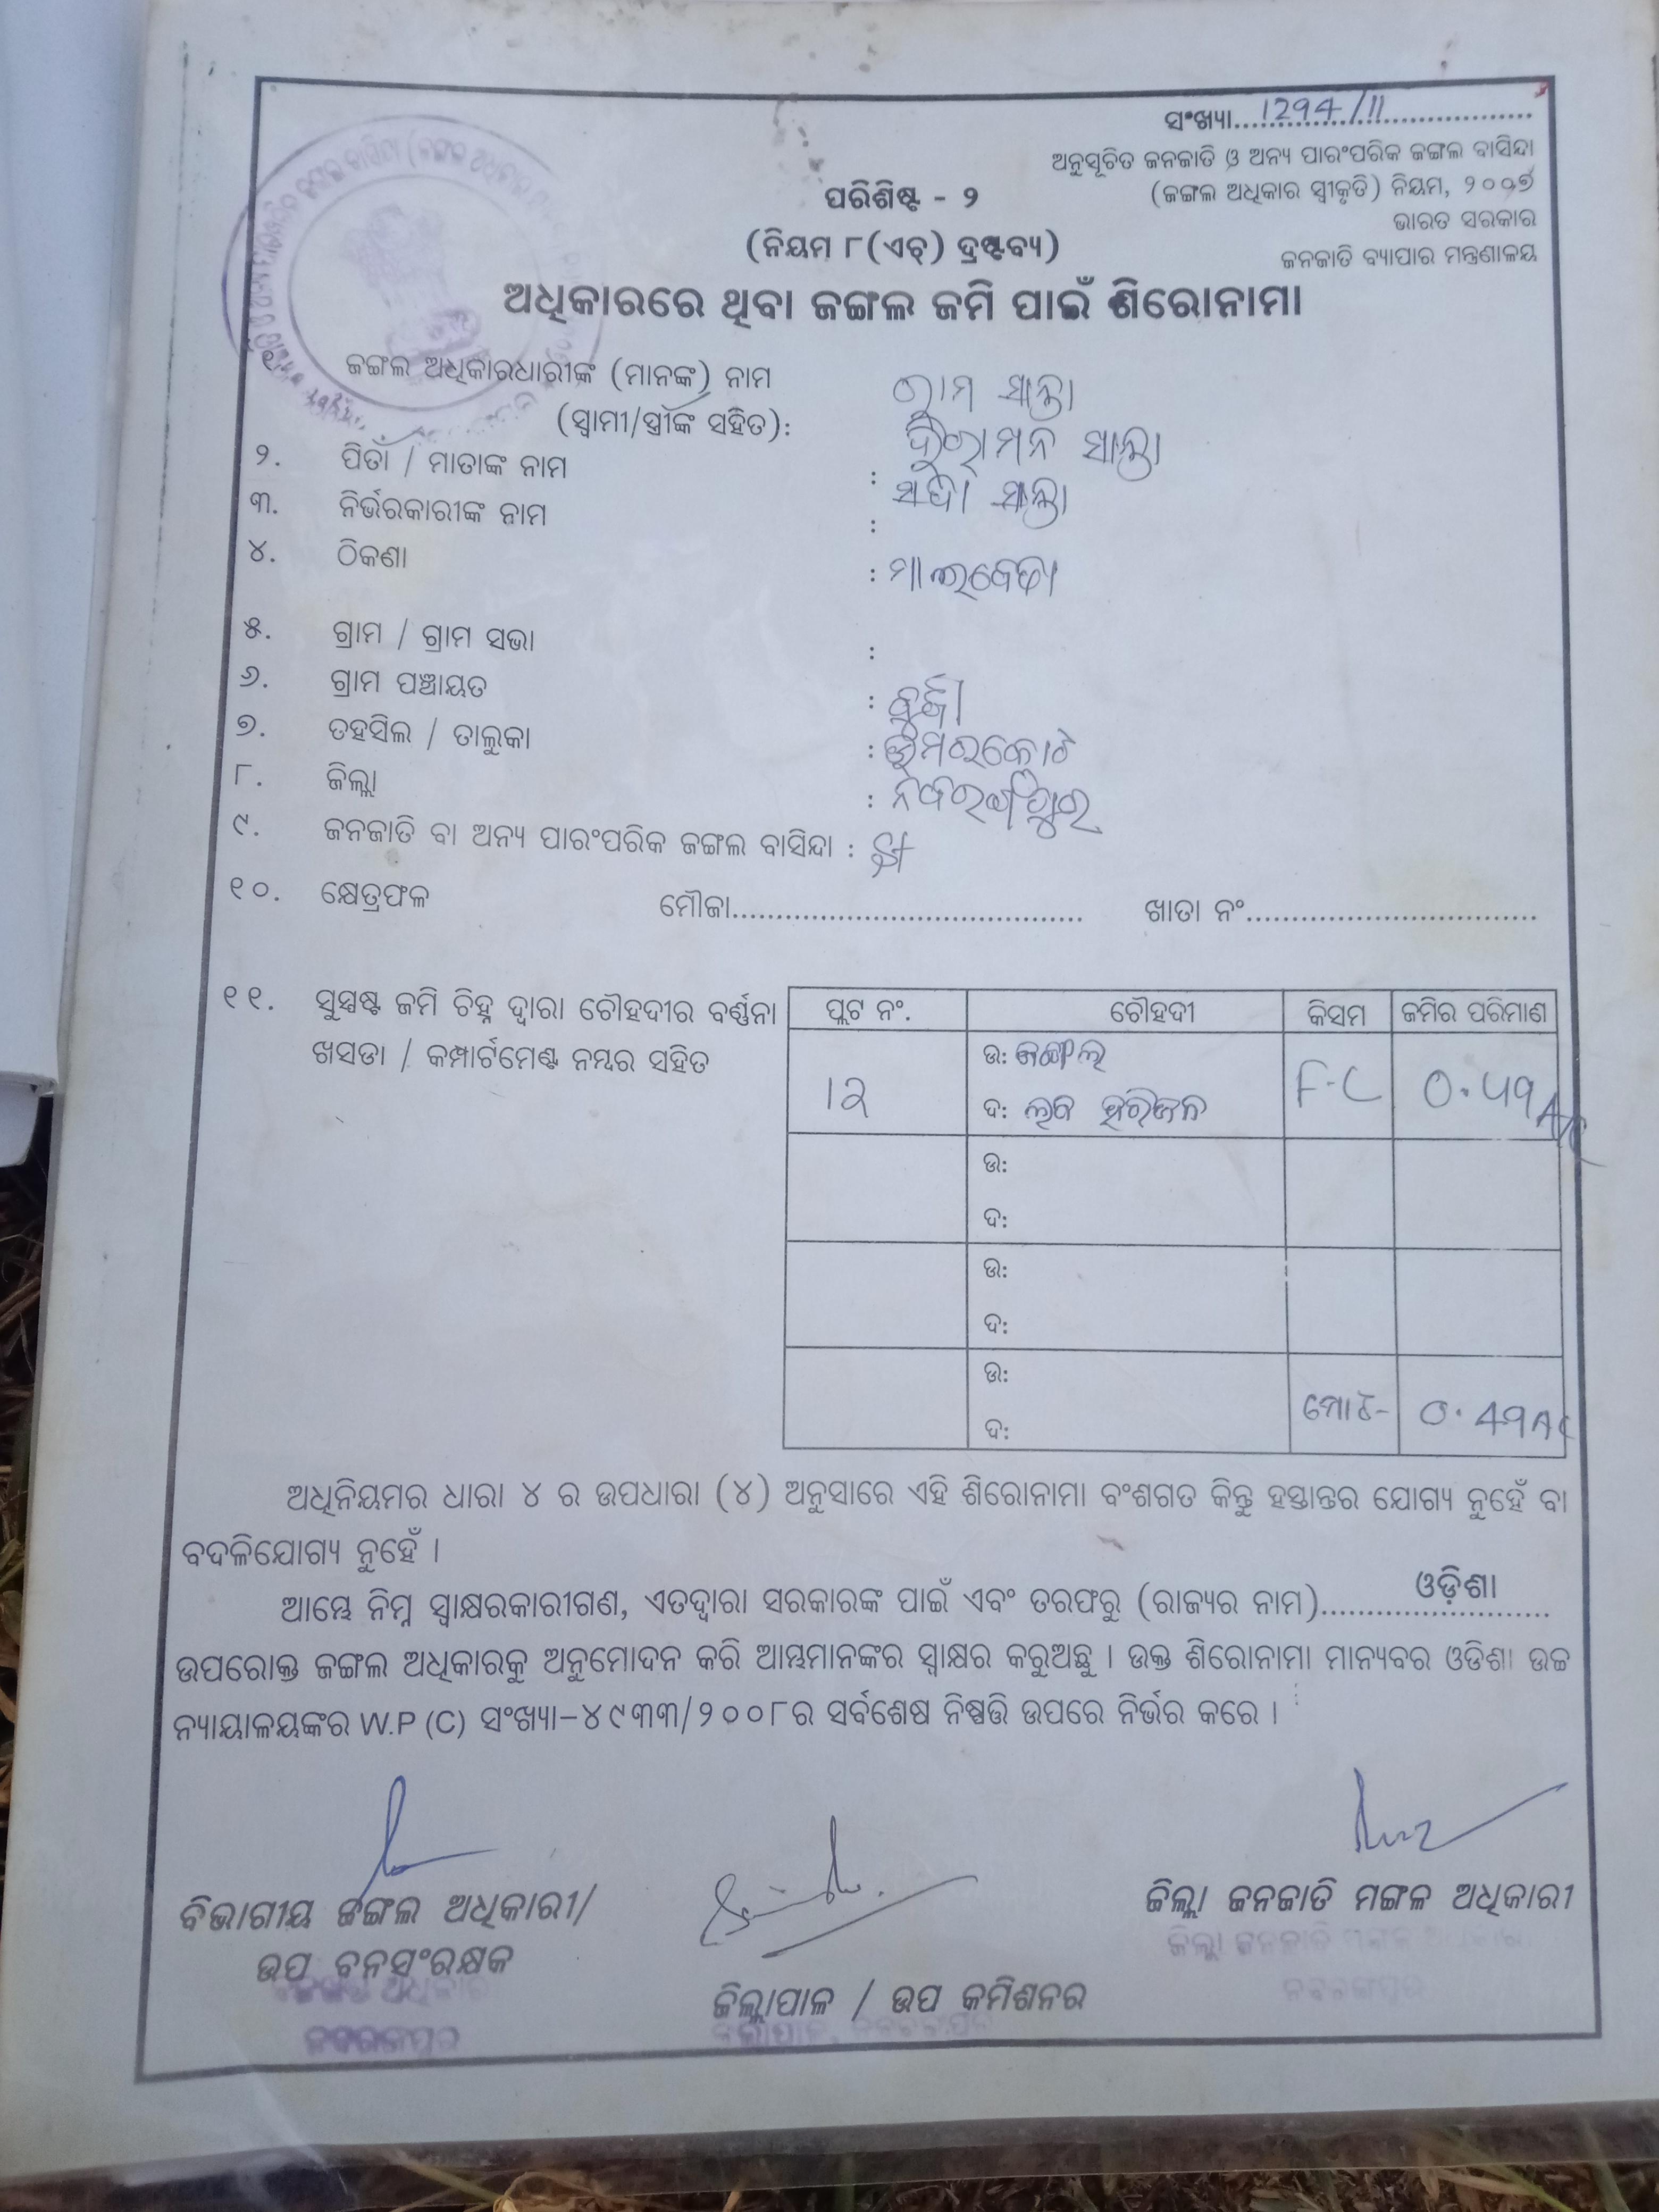 ସଂଖ୍ୟା....1294/11....
ଅନୁସୂଚିତ ଜନଜାତି ଓ ଅନ୍ୟ ପାରଂପରିକ ଜଙ୍ଗଲ ବାସିନ୍ଦା
(ଜଙ୍ଗଲ ଅଧିକାର ସ୍ୱୀକୃତି) ନିୟମ, ୨୦୦୭
ଭାରତ ସରକାର
ଜନଜାତି ବ୍ୟାପାର ମନ୍ତ୍ରଣାଳୟ
ପରିଶିଷ୍ଟ - ୨
(ନିୟମ ୮(ଏଚ୍) ଦ୍ରଷ୍ଟବ୍ୟ)
ଅଧିକାରରେ ଥିବା ଜଙ୍ଗଲ ଜମି ପାଇଁ ଶିରୋନାମା
୧. ଜଙ୍ଗଲ ଅଧିକାରଧାରୀଙ୍କ (ମାନଙ୍କ) ନାମ ରାମ ସାନ୍ତା
(ସ୍ୱାମୀ/ସ୍ତ୍ରୀଙ୍କ ସହିତ):
୨. ପିତା / ମାତାଙ୍କ ନାମ : ସାନ୍ତା
୩. ନିର୍ଭରକାରୀଙ୍କ ନାମ : ସାନ୍ତା
୪. ଠିକଣା : ମାଲବେଡା
୫. ଗ୍ରାମ / ଗ୍ରାମ ସଭା :
୬. ଗ୍ରାମ ପଞ୍ଚାୟତ : ବୁର୍ଜା
୭. ତହସିଲ / ତାଲୁକା : ଉମରକୋଟ
୮. ଜିଲ୍ଲା : ନବରଙ୍ଗପୁର
୯. ଜନଜାତି ବା ଅନ୍ୟ ପାରଂପରିକ ଜଙ୍ଗଲ ବାସିନ୍ଦା : St
୧୦. କ୍ଷେତ୍ରଫଳ ମୌଜା.... ଖାତା ନଂ....
୧୧. ସୁସ୍ପଷ୍ଟ ଜମି ଚିହ୍ନ ଦ୍ୱାରା ଚୌହଦୀର ବର୍ଣ୍ଣନା
ଖସଡା / କମ୍ପାର୍ଟମେଣ୍ଟ ନମ୍ବର ସହିତ
ପ୍ଲଟ ନଂ. ଚୌହଦୀ କିସମ ଜମିର ପରିମାଣ
ଉ: ଜଙ୍ଗଲ
12 F-C
ଦ: ଲବ ହରିଜନ
ଉ:
ଦ:
ଉ:
ଦ:
ଉ:
ମୋଟ-
ଦ:
ଅଧିନିୟମର ଧାରା ୪ ର ଉପଧାରା (୪) ଅନୁସାରେ ଏହି ଶିରୋନାମା ବଂଶଗତ କିନ୍ତୁ ହସ୍ତାନ୍ତର ଯୋଗ୍ୟ ନୁହେଁ ବା
ବଦଳିଯୋଗ୍ୟ ନୁହେଁ ।
ଆମ୍ଭେ ନିମ୍ନ ସ୍ୱାକ୍ଷରକାରୀଗଣ, ଏତଦ୍ୱାରା ସରକାରଙ୍କ ପାଇଁ ଏବଂ ତରଫରୁ (ରାଜ୍ୟର ନାମ)....ଓଡ଼ିଶା....
ଉପରୋକ୍ତ ଜଙ୍ଗଲ ଅଧିକାରକୁ ଅନୁମୋଦନ କରି ଆମ୍ଭମାନଙ୍କର ସ୍ୱାକ୍ଷର କରୁଅଛୁ । ଉକ୍ତ ଶିରୋନାମା ମାନ୍ୟବର ଓଡିଶା ଉଚ୍ଚ
ନ୍ୟାୟାଳୟଙ୍କର W.P (C) ସଂଖ୍ୟା-୪୯୩୩/୨୦୦୮ର ସର୍ବଶେଷ ନିଷ୍ପତ୍ତି ଉପରେ ନିର୍ଭର କରେ ।
ବିଭାଗୀୟ ଜଙ୍ଗଲ ଅଧିକାରୀ/
ଉପ ବନସଂରକ୍ଷକ
ନବରଙ୍ଗପୁର
ଜିଲ୍ଲାପାଳ / ଉପ କମିଶନର
ଜିଲ୍ଲା ଜନଜାତି ମଙ୍ଗଳ ଅଧିକାରୀ
ଜିଲ୍ଲା ଜନଜାତି ମଙ୍ଗଳ ଅଧିକାରୀ
ନବରଙ୍ଗପୁର